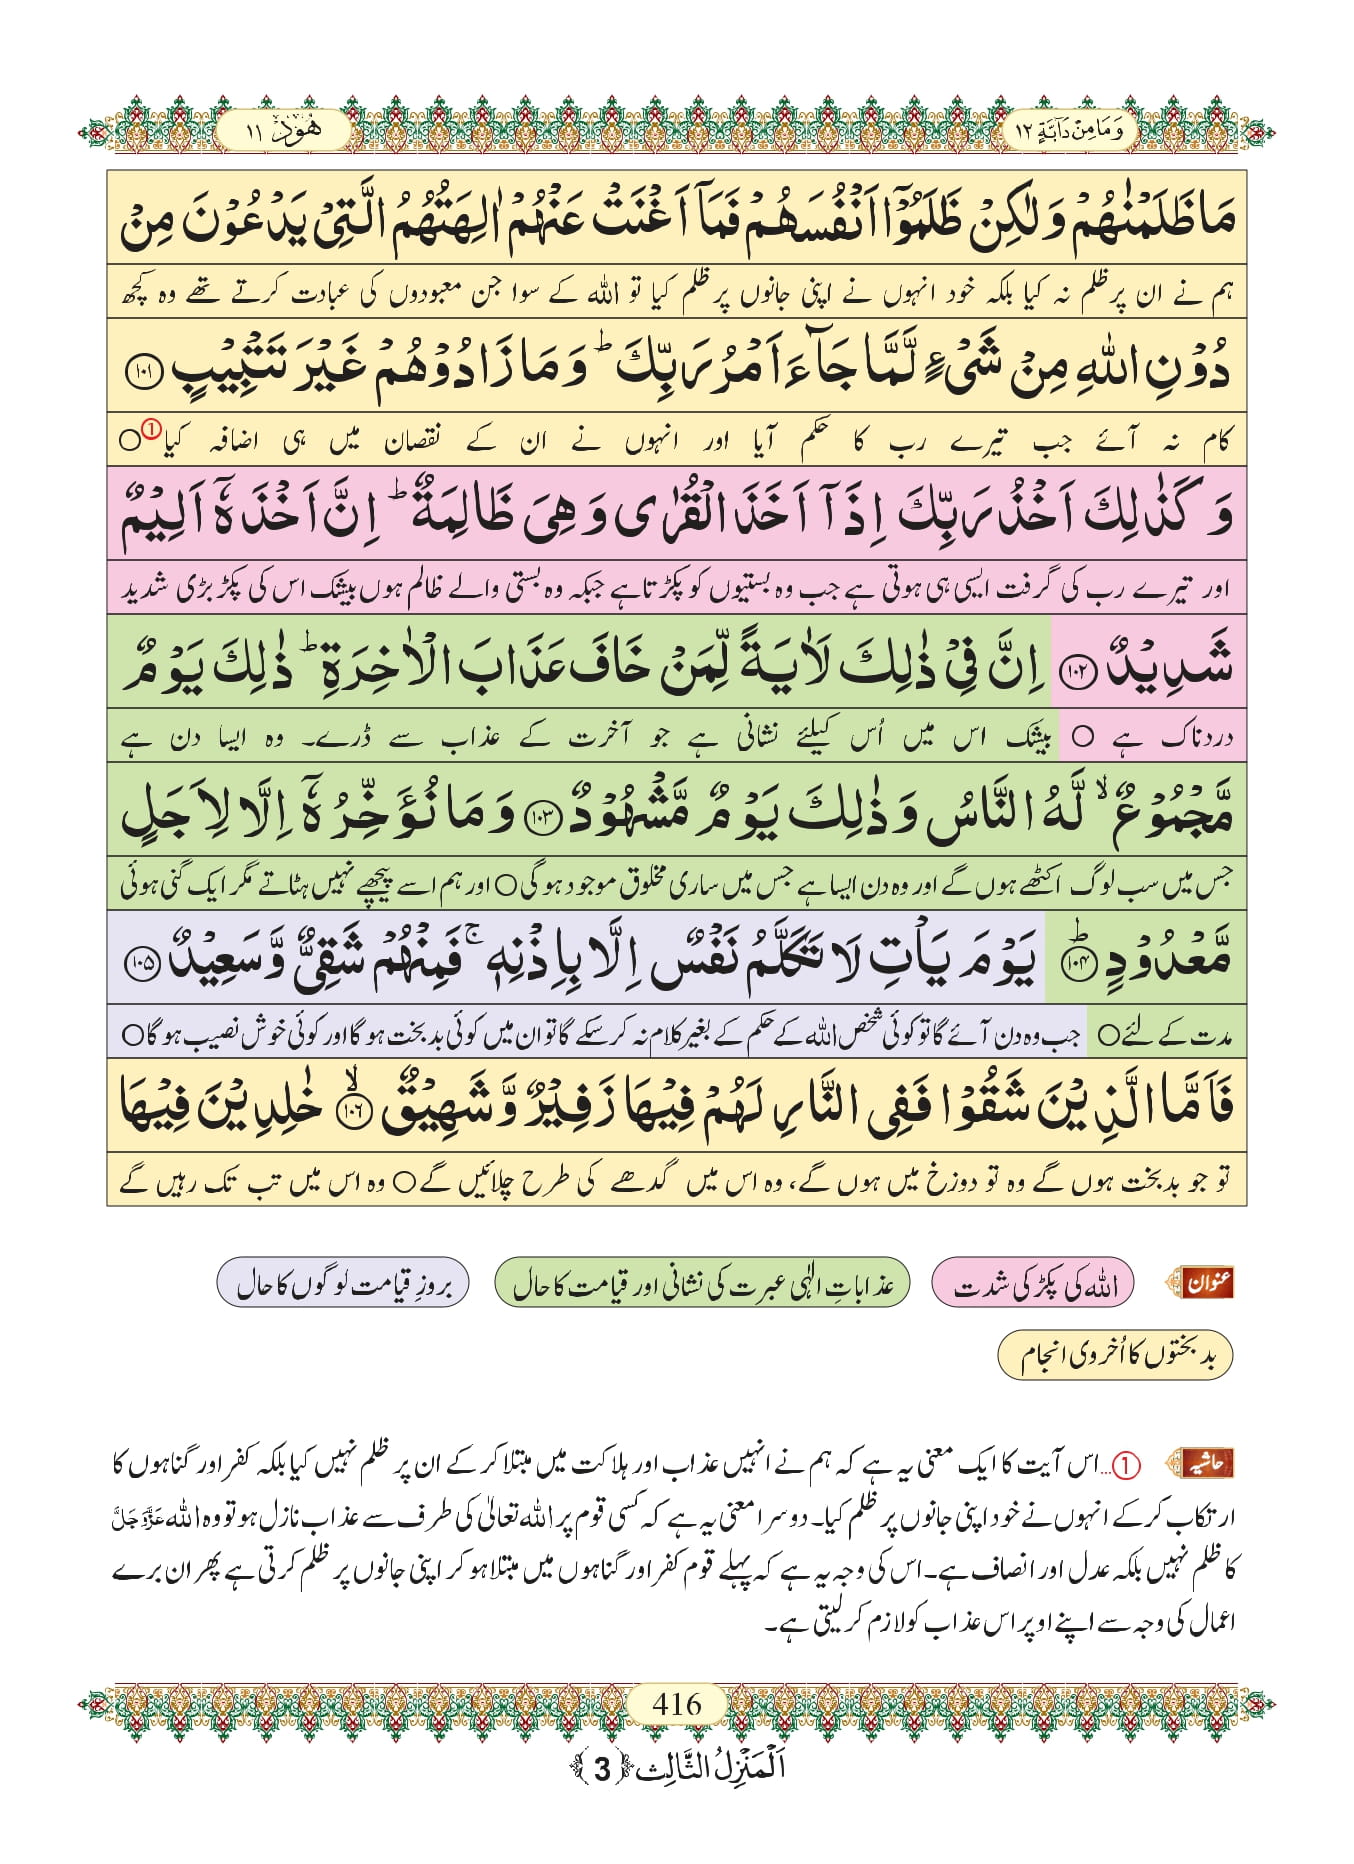 وَ مَا مِنْ دَآبَّةٍ ۱۲
هُوْد ۱۱
مَا ظَلَمْنٰهُمْ وَ لٰكِنْ ظَلَمُوْۤا اَنْفُسَهُمْ فَمَاۤ اَغْنَتْ عَنْهُمْ اٰلِهَتُهُمُ الَّتِیْ یَدْعُوْنَ مِنْ
ہم نے ان پر ظلم نہ کیا بلکہ خود انہوں نے اپنی جانوں پر ظلم کیا تو اللہ کے سوا جن معبودوں کی عبادت کرتے تھے وہ کچھ
دُوْنِ اللّٰهِ مِنْ شَیْءٍ لَّمَّا جَآءَ اَمْرُ رَبِّكَؕ وَ مَا زَادُوْهُمْ غَیْرَ تَتْبِیْبٍ ۱۰۱
کام نہ آئے جب تیرے رب کا حکم آیا اور انہوں نے ان کے نقصان میں ہی اضافہ کیا 1 ○
وَ كَذٰلِكَ اَخْذُ رَبِّكَ اِذَاۤ اَخَذَ الْقُرٰى وَ هِیَ ظَالِمَةٌؕ اِنَّ اَخْذَهٗۤ اَلِیْمٌ
اور تیرے رب کی گرفت ایسی ہی ہوتی ہے جب وہ بستیوں کو پکڑتا ہے جبکہ وہ بستی والے ظالم ہوں بیشک اس کی پکڑ بڑی شدید
شَدِیْدٌ ۱۰۲ اِنَّ فِیْ ذٰلِكَ لَاٰیَةً لِّمَنْ خَافَ عَذَابَ الْاٰخِرَةِؕ ذٰلِكَ یَوْمٌ
دردناک ہے ○ بیشک اس میں اُس کیلئے نشانی ہے جو آخرت کے عذاب سے ڈرے۔ وہ ایسا دن ہے
مَّجْمُوْعٌۙ لَّهُ النَّاسُ وَ ذٰلِكَ یَوْمٌ مَّشْهُوْدٌ ۱۰۳ وَ مَا نُؤَخِّرُهٗۤ اِلَّا لِاَجَلٍ
جس میں سب لوگ اکٹھے ہوں گے اور وہ دن ایسا ہے جس میں ساری مخلوق موجود ہو گی ○ اور ہم اسے پیچھے نہیں ہٹاتے مگر ایک گنی ہوئی
مَّعْدُوْدٍؕ ۱۰۴ یَوْمَ یَاْتِ لَا تَكَلَّمُ نَفْسٌ اِلَّا بِاِذْنِهٖۚ فَمِنْهُمْ شَقِیٌّ وَّ سَعِیْدٌ ۱۰۵
مدت کے لئے ○ جب وہ دن آئے گا تو کوئی شخص اللہ کے حکم کے بغیر کلام نہ کر سکے گا تو ان میں کوئی بدبخت ہو گا اور کوئی خوش نصیب ہو گا ○
فَاَمَّا الَّذِیْنَ شَقُوْا فَفِی النَّارِ لَهُمْ فِیْهَا زَفِیْرٌ وَّ شَهِیْقٌۙ ۱۰۶ خٰلِدِیْنَ فِیْهَا
تو جو بدبخت ہوں گے وہ تو دوزخ میں ہوں گے، وہ اس میں گدھے کی طرح چلائیں گے ○ وہ اس میں تب تک رہیں گے
عنوان اللہ کی پکڑ کی شدت عذاباتِ الٰہی عبرت کی نشانی اور قیامت کا حال بروزِ قیامت لوگوں کا حال
بدبختوں کا اُخروی انجام
حاشیہ 1...اس آیت کا ایک معنی یہ ہے کہ ہم نے انہیں عذاب اور ہلاکت میں مبتلا کر کے ان پر ظلم نہیں کیا بلکہ کفر اور گناہوں کا
ارتکاب کر کے انہوں نے خود اپنی جانوں پر ظلم کیا۔ دوسرا معنی یہ ہے کہ کسی قوم پر اللہ تعالیٰ کی طرف سے عذاب نازل ہو تو وہ اللہ عَزَّوَجَلَّ
کا ظلم نہیں بلکہ عدل اور انصاف ہے۔ اس کی وجہ یہ ہے کہ پہلے قوم کفر اور گناہوں میں مبتلا ہو کر اپنی جانوں پر ظلم کرتی ہے پھر ان برے
اعمال کی وجہ سے اپنے اوپر اس عذاب کو لازم کر لیتی ہے۔
416
اَلْمَنْزِلُ الثَّالِث ﴿3﴾